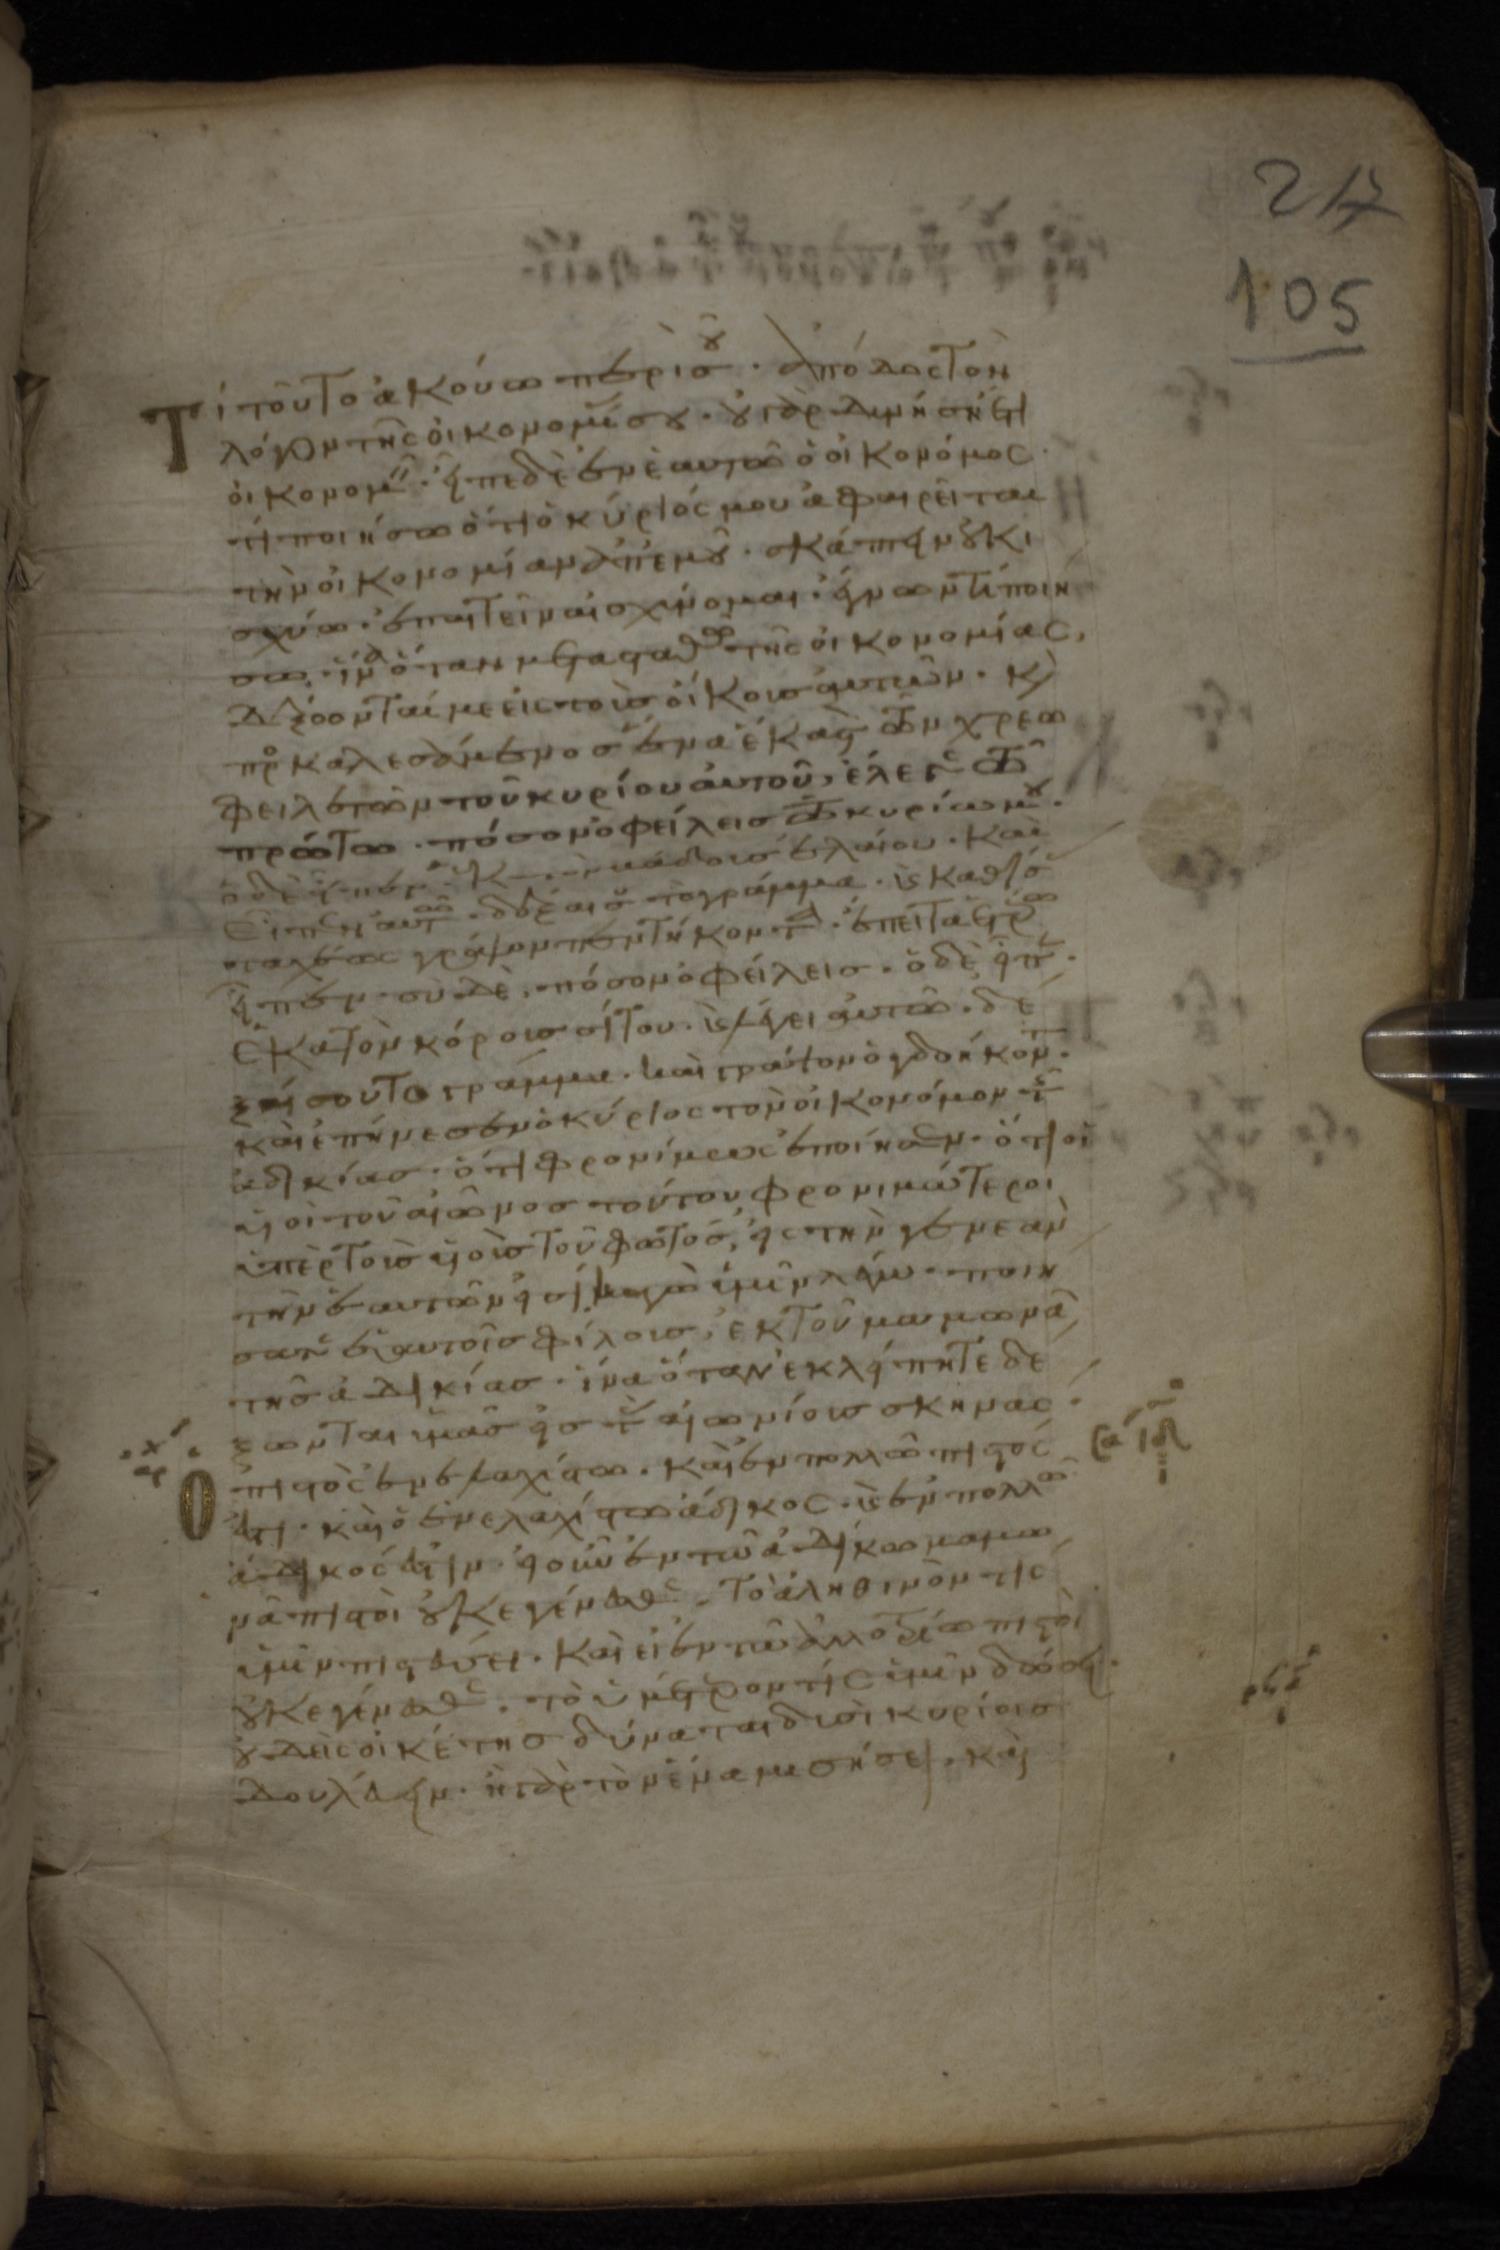 217
105
Τί τοῦτο ἀκούω περὶ σοῦ· ἀπόδος τὸν
λόγον τῆς οἰκονομί σου· οὐ γὰρ δυνήσῃ ἔτι
οἰκονομεῖν· εἶπε δὲ ἐν ἑαυτῶ ὁ οἰκονόμος·
τί ποιήσω ὅτι ὁ κύριός μου ἀφαιρεῖται
τὴν οἰκονομίαν ἀπ' ἐμοῦ· σκάπτειν οὐκ ἰ
σχύω· ἐπαιτεῖν αἰσχύνομαι· ἔγνων τί ποιή
σω· ἵνα ὅταν μετασταθῶ τῆς οἰκονομίας,
δέξονταί με εἰς τοὺς οἴκους αὐτῶν· κ
προσκαλεσάμενος ἕνα ἕκαστ τῶν χρεω
φειλετῶν τοῦ κυρίου αὐτοῦ, ἔλεγε τῶ
πρώτω· πόσον ὀφείλεις τῶ κυρίω μου·
ὁ δὲ εἶπεν· βάτους ἐλαίου· καὶ
εἶπεν αὐτῶ· δέξαι σου τὸ γράμμα· κ καθίσ
ταχέως γράψον πεντήκοντα· ἔπειτα ἑτέρω
εἶπεν· σὺ δὲ, πόσον ὀφείλεις· ὁ δὲ εἶπεν·
ἑκατὸν κόρους σίτου· κ λέγει αὐτῶ· δέ
ξαι σου το γράμμα· καὶ γράψον ὀγδοήκοντ·
καὶ ἐπήνεσεν ὁ κύριος τὸν οἰκονόμον τῆς
ἀδικίας· ὅτι φρονίμως ἐποίησεν· ὅτι οἱ
υἱοὶ τοῦ αἰῶνος τούτου φρονιμώτεροι
ὑπὲρ τοὺς υἱοὺς τοῦ φωτός, εἰς τὴν γενεὰν
τὴν ἑαυτῶν εἰσί· κἀγὼ ὑμῖν λέγω· ποιή
σατε ἑαυτοῖς φίλους, ἐκ τοῦ μαμωνᾶ
τῆς ἀδικίας· ἵνα ὅταν ἐκλείπητε δέ
ξωνται ὑμᾶς εἰς τὰς αἰωνίους σκηνάς·
Ὁ πιστὸς ἐν ἐλαχίστω· καὶ ἐν πολλῶ πιστός
ἐστι· καὶ ὁ ἐν ἐλαχίστω ἄδικος· κ ἐν πολλῶ
ἄδικός ἐστιν· εἰ οὖν ἐν τῶ ἀδίκω μαμω
νᾶ πιστοὶ οὐκ ἐγένεσθε· τὸ ἀληθινὸν τίς
ὑμῖν πιστεύσει· καὶ εἰ ἐν τῶ ἀλλοτρίω πιστοὶ
οὐκ ἐγένεσθε· τὸ ὑμέτερον τίς ὑμῖν δώσει·
οὐδεὶς οἰκέτης δύναται δυσὶ κυρίοις
δουλεύειν· ἢ γὰρ τὸν ἕνα μισήσει· καὶ